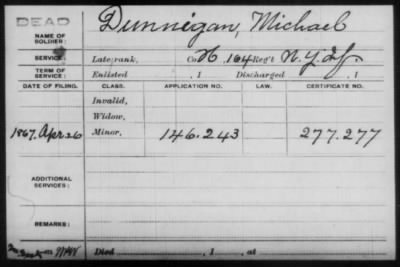 DEAD
Dunnigan, Michael
NAME OF SOLDIER:
SERVICE: Late rank, Co. H, 164 Reg't N.Y. Inf.
TERM OF SERVICE: Enlisted , 1 Discharged , 1
DATE OF FILING. CLASS. APPLICATION NO. LAW. CERTIFICATE NO.
Invalid,
Widow,
1867, Apr. 26 Minor, 146.243 277.277
ADDITIONAL SERVICES:
REMARKS:
Died , 1 , at